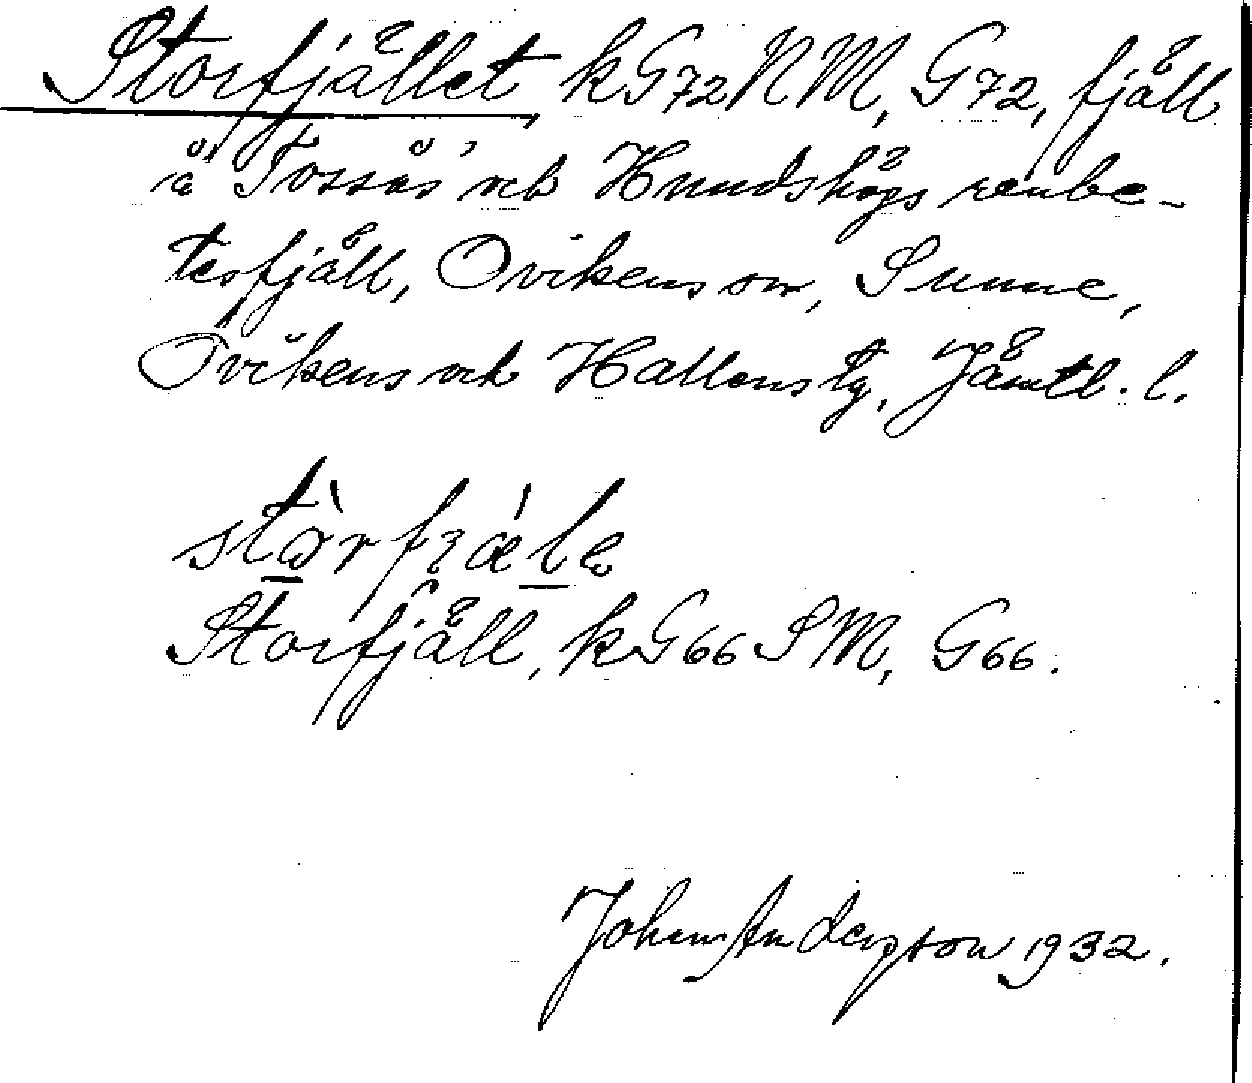 Storfjället, kG72NM, G72, fjäll
å Tossås' och Hundshögs renbe-
tesfjäll, Ovikens sn, Sunne,
Ovikens och Hallens tg, Jämtl. l.
stò̱rfɿǽḻe
Storfjäll, kG66SM, G66.
Johan Andersson 1932.